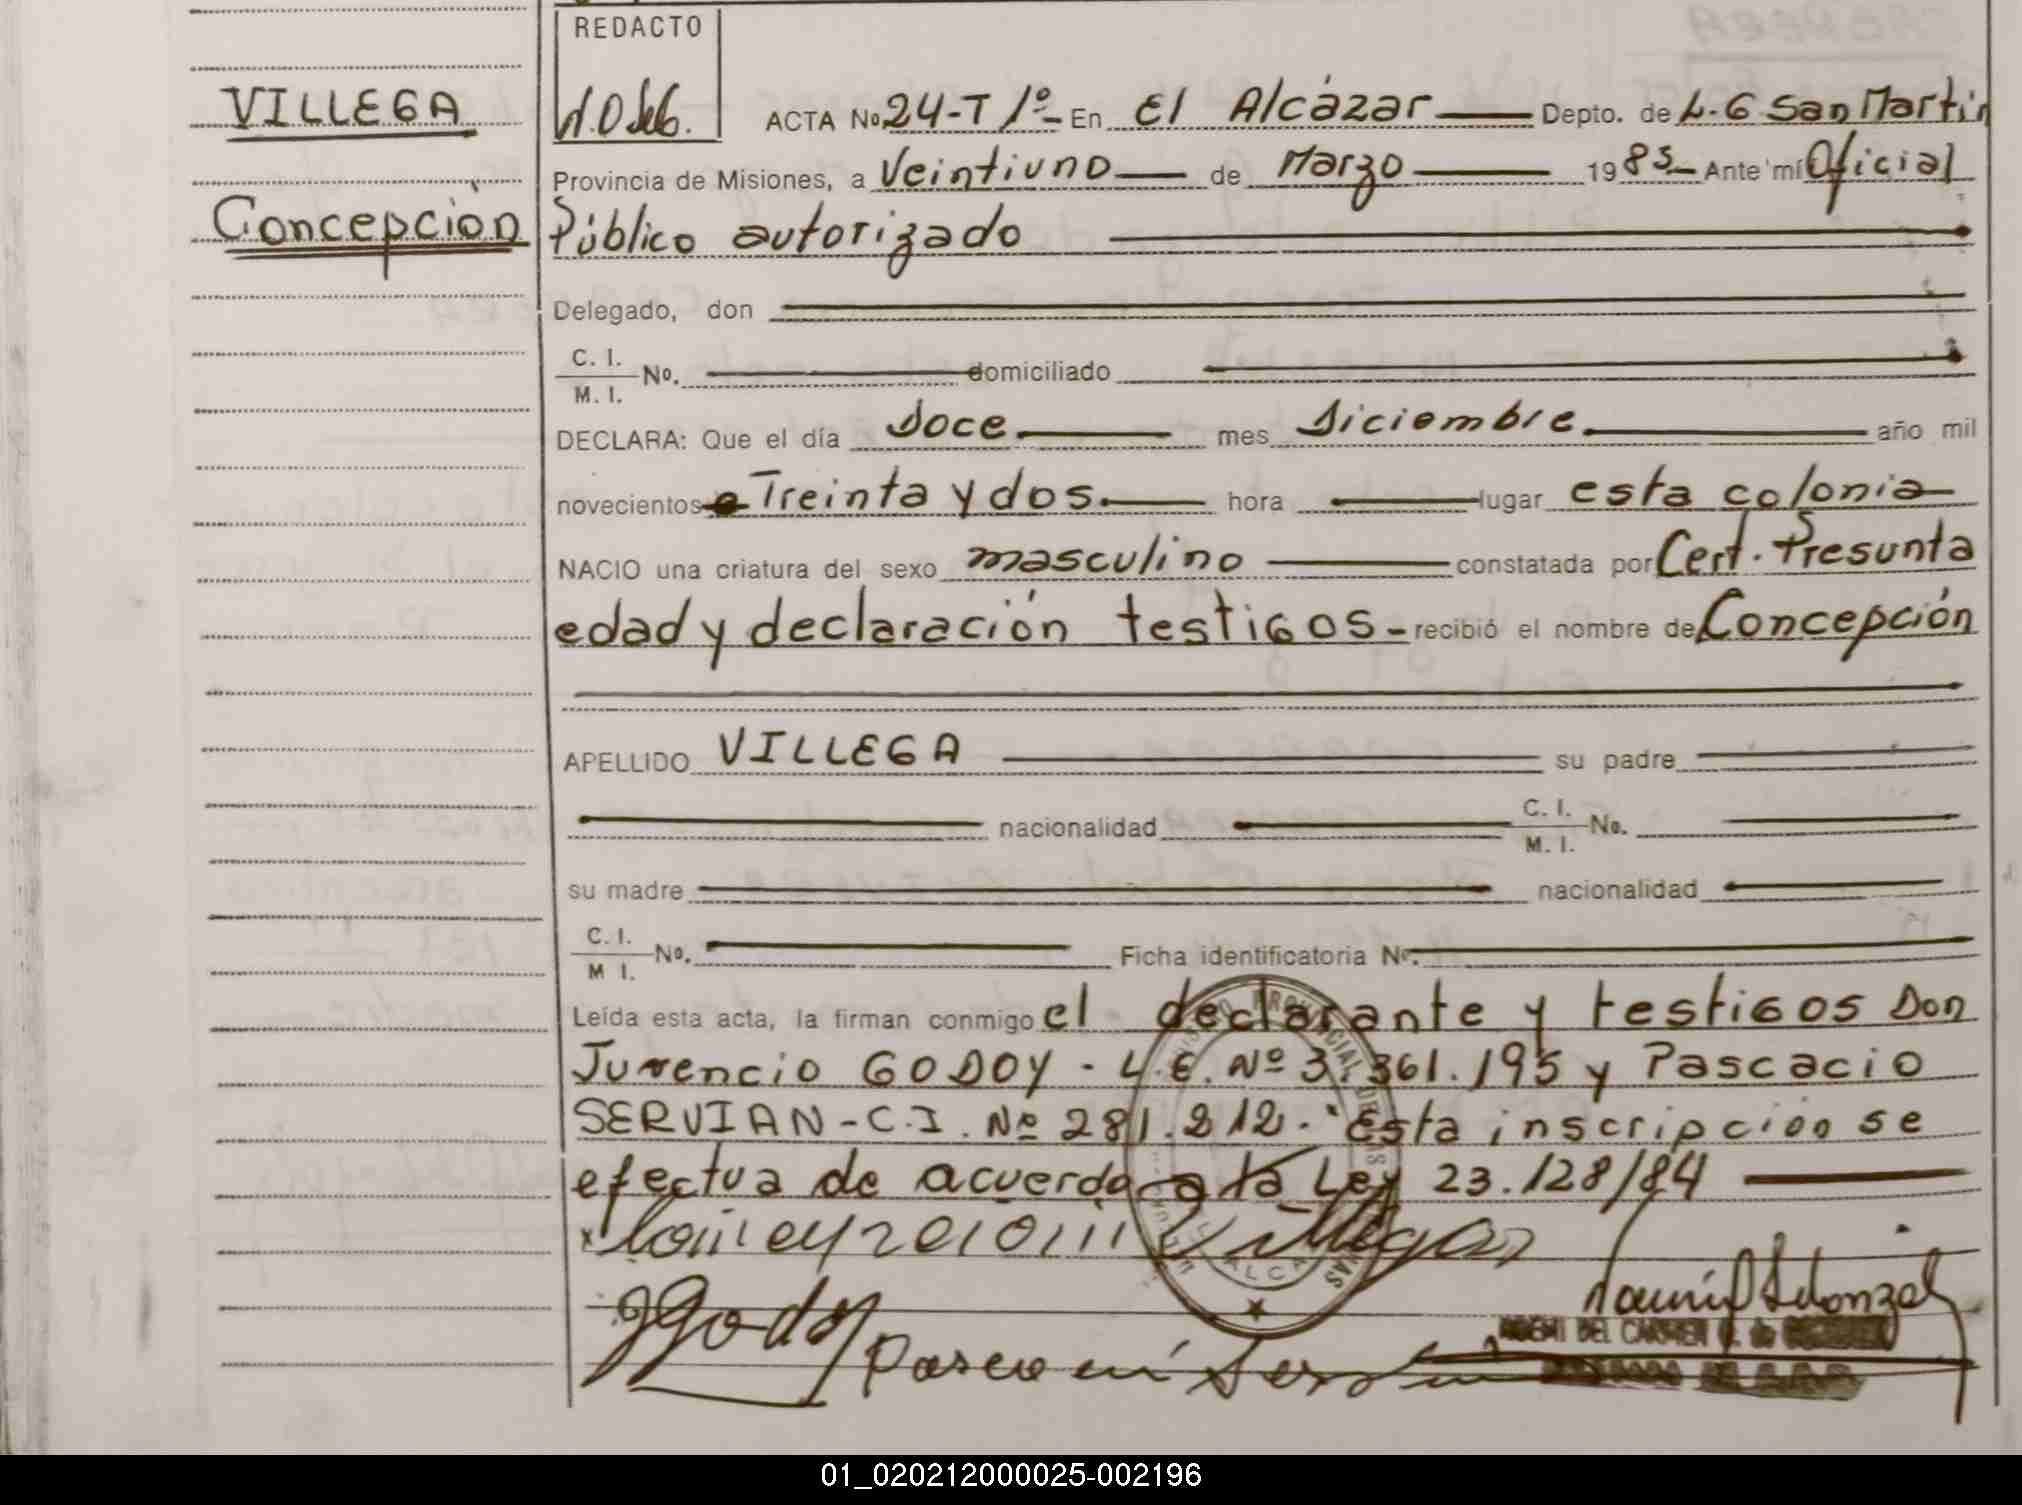 REDACTO
VILLEGA
ACTA No. 24-T 1º- En El Alcázar Depto. de L.G San Martín
Provincia de Misiones, a Veintiuno de Marzo 1985- Ante mí Oficial
Concepción
Público autorizado
Delegado, don
C. I.
M. I. No. domiciliado
DECLARA: Que el día Doce mes Diciembre año mil
novecientos Treinta y dos. hora lugar esta colonia
NACIO una criatura del sexo masculino constatada por Cert. Presunta
edad y declaración testigos - recibió el nombre de Concepción
APELLIDO VILLEGA su padre
nacionalidad C. I. No.
M. I.
su madre nacionalidad
C. I. No. Ficha identificatoria Nº.
M I.
Leída esta acta, la firman conmigo el declarante y testigos Don
Juvencio GODOY - L.E. Nº 3.361.195 y Pascacio
SERVIAN - C.I. Nº 281.212. Esta inscripción se
efectua de acuerdo a la Ley 23.128/84
Villegas
JGodoy
01_020212000025-002196